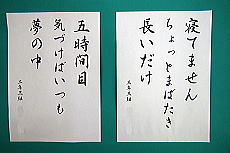 寝てません
ちょっとまばたき
長いだけ
五時間目
気づけばいつも
夢の中